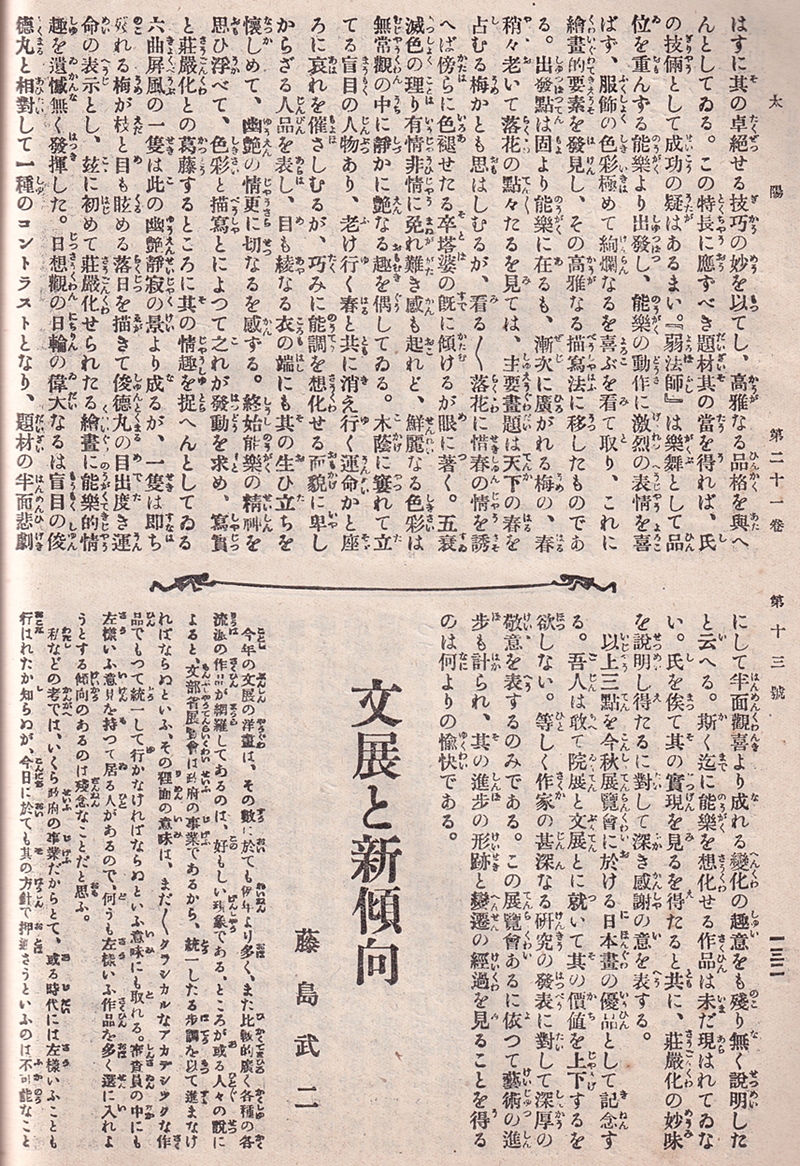 太陽 第二十一卷 第十三號 一三二
はすに其の卓絕せる技巧の妙を以てし、高雅なる品格を與へ
んとしてゐる。この特長に應ずべき題材其の當を得れば、氏
の技倆として成功の疑はあるまい。『弱法師』は樂舞として品
位を重んずる能樂より出發し、能樂の動作に激烈の表情を喜
ばず、服飾の色彩極めて絢爛なるを喜ぶを看て取り、これに
繪畫的要素を發見し、その高雅なる描寫法に移したものであ
る。出發點は固より能樂に在るも、漸次に廣がれる梅の、春
稍々老いて落花の點々たるを見ては、主要畫題は天下の春を
占むる梅かとも思はしむるが、看る〱落花に惜春の情を誘
へば傍らに色褪せたる卒塔婆の旣に傾けるが眼に著く。五衰
滅色の理り有情非情に免れ難き感も起れど、鮮麗なる色彩は
無常觀の中に靜かに艶なる趣を偶してゐる。木蔭に窶れて立
てる盲目の人物あり、老け行く春と共に消え行く運命かと座
ろに哀れを催さしむるが、巧みに能調を想化せる面貌に卑し
からざる人品を表し、目も綾なる衣の端にも其の生ひ立ちを
懷しめて、幽艶の情更に切なるを感ずる。終始能樂の精神を
思ひ浮べて、色彩と描寫とによつて之れが發動を求め、寫實
と莊嚴化との葛藤するところに其の情趣を捉へんとしてゐる
六曲屛風の一隻は此の幽艶靜寂の景より成るが、一隻は卽ち
殘れる梅が枝と目も眩める落日を描きて俊德丸の目出度き運
命の表示とし、玆に初めて莊嚴化せられたる繪畫に能樂的情
趣を遺憾無く發揮した。日想觀の日輪の偉大なるは盲目の俊
德丸と相對して一種のコントラストとなり、題材の半面悲劇
にして半面觀喜より成れる變化の趣意をも殘り無く說明した
と云へる。斯く迄に能樂を想化せる作品は未だ現はれてゐな
い。氏を俟て其の實現を見るを得たると共に、莊嚴化の妙味
を說明し得たるに對して深き感謝の意を表する。
以上三點を今秋展覽會に於ける日本畫の優品として記念す
る。吾人は敢て院展と文展とに就いて其の價値を上下するを
欲しない。等しく作家の甚深なる硏究の發表に對して深厚の
敬意を表するのみである。この展覽會あるに依つて藝術の進
步も計られ、其の進步の形跡と變遷の經過を見ることを得る
のは何よりの愉快である。
文展と新傾向
藤島武二
今年の文展の洋畫は、その數に於ても例年より多く、また比較的廣く各種の各
流派の作品が網羅してあるのは、好もしい現象である。ところが或る人々の說に
よると、文部省展覽會は政府の事業であるから、統一したる步調を以て進まなけ
ればならぬといふ、その裡面の意味は、まだ〱クラシカルなアカデミックな作
品でもつて統一して行かなければならぬといふ意味にも取れる。審査員の中にも
左樣いふ意見を持つて居る人があるので、何うも左樣いふ作品を多く選に入れよ
うとする傾向のあるのは殘念なことだと思ふ。
私などの考では、いくら政府の事業だからとて、或る時代には左樣いふことも
行はれたか知らぬが、今日に於ても其の方針で押通さうといふのは不可能なこと